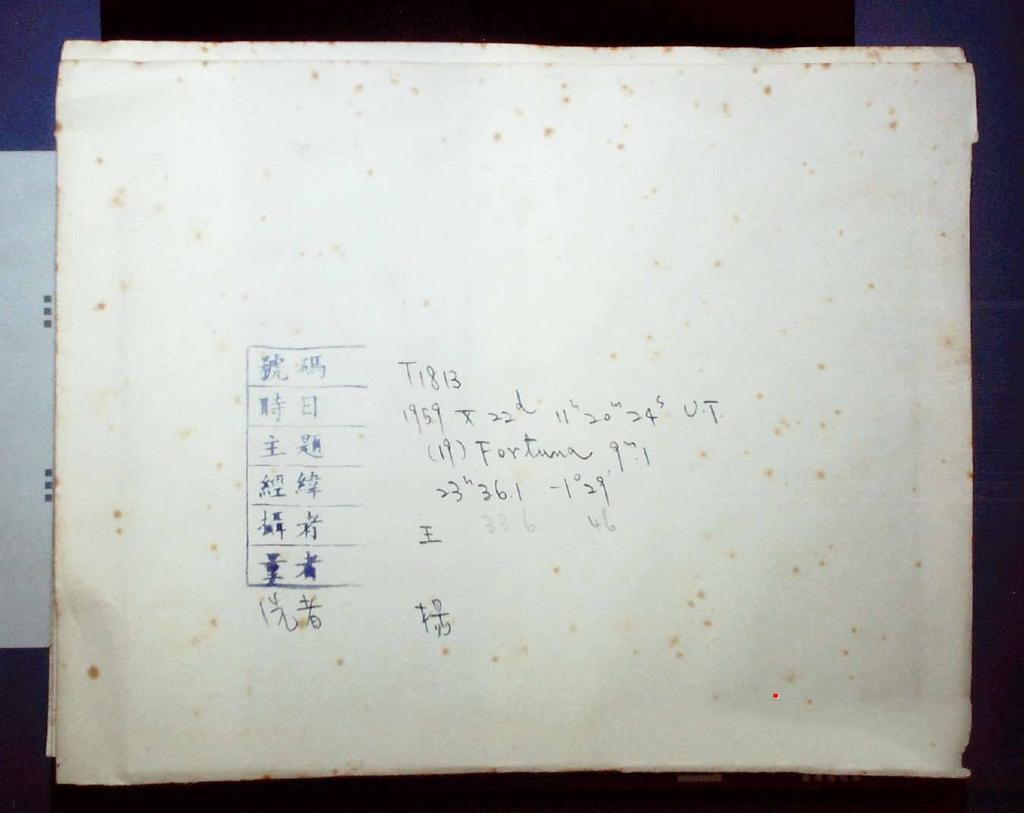 號碼 T1813
時日 1959 X 22ᵈ 11ʰ20ᵐ24ˢ U.T.
主題 (19) Fortuna 9ᵐ.1
經緯 23ʰ36.1 -1°29'
33.6 46
攝者 王
量者
洗者 楊